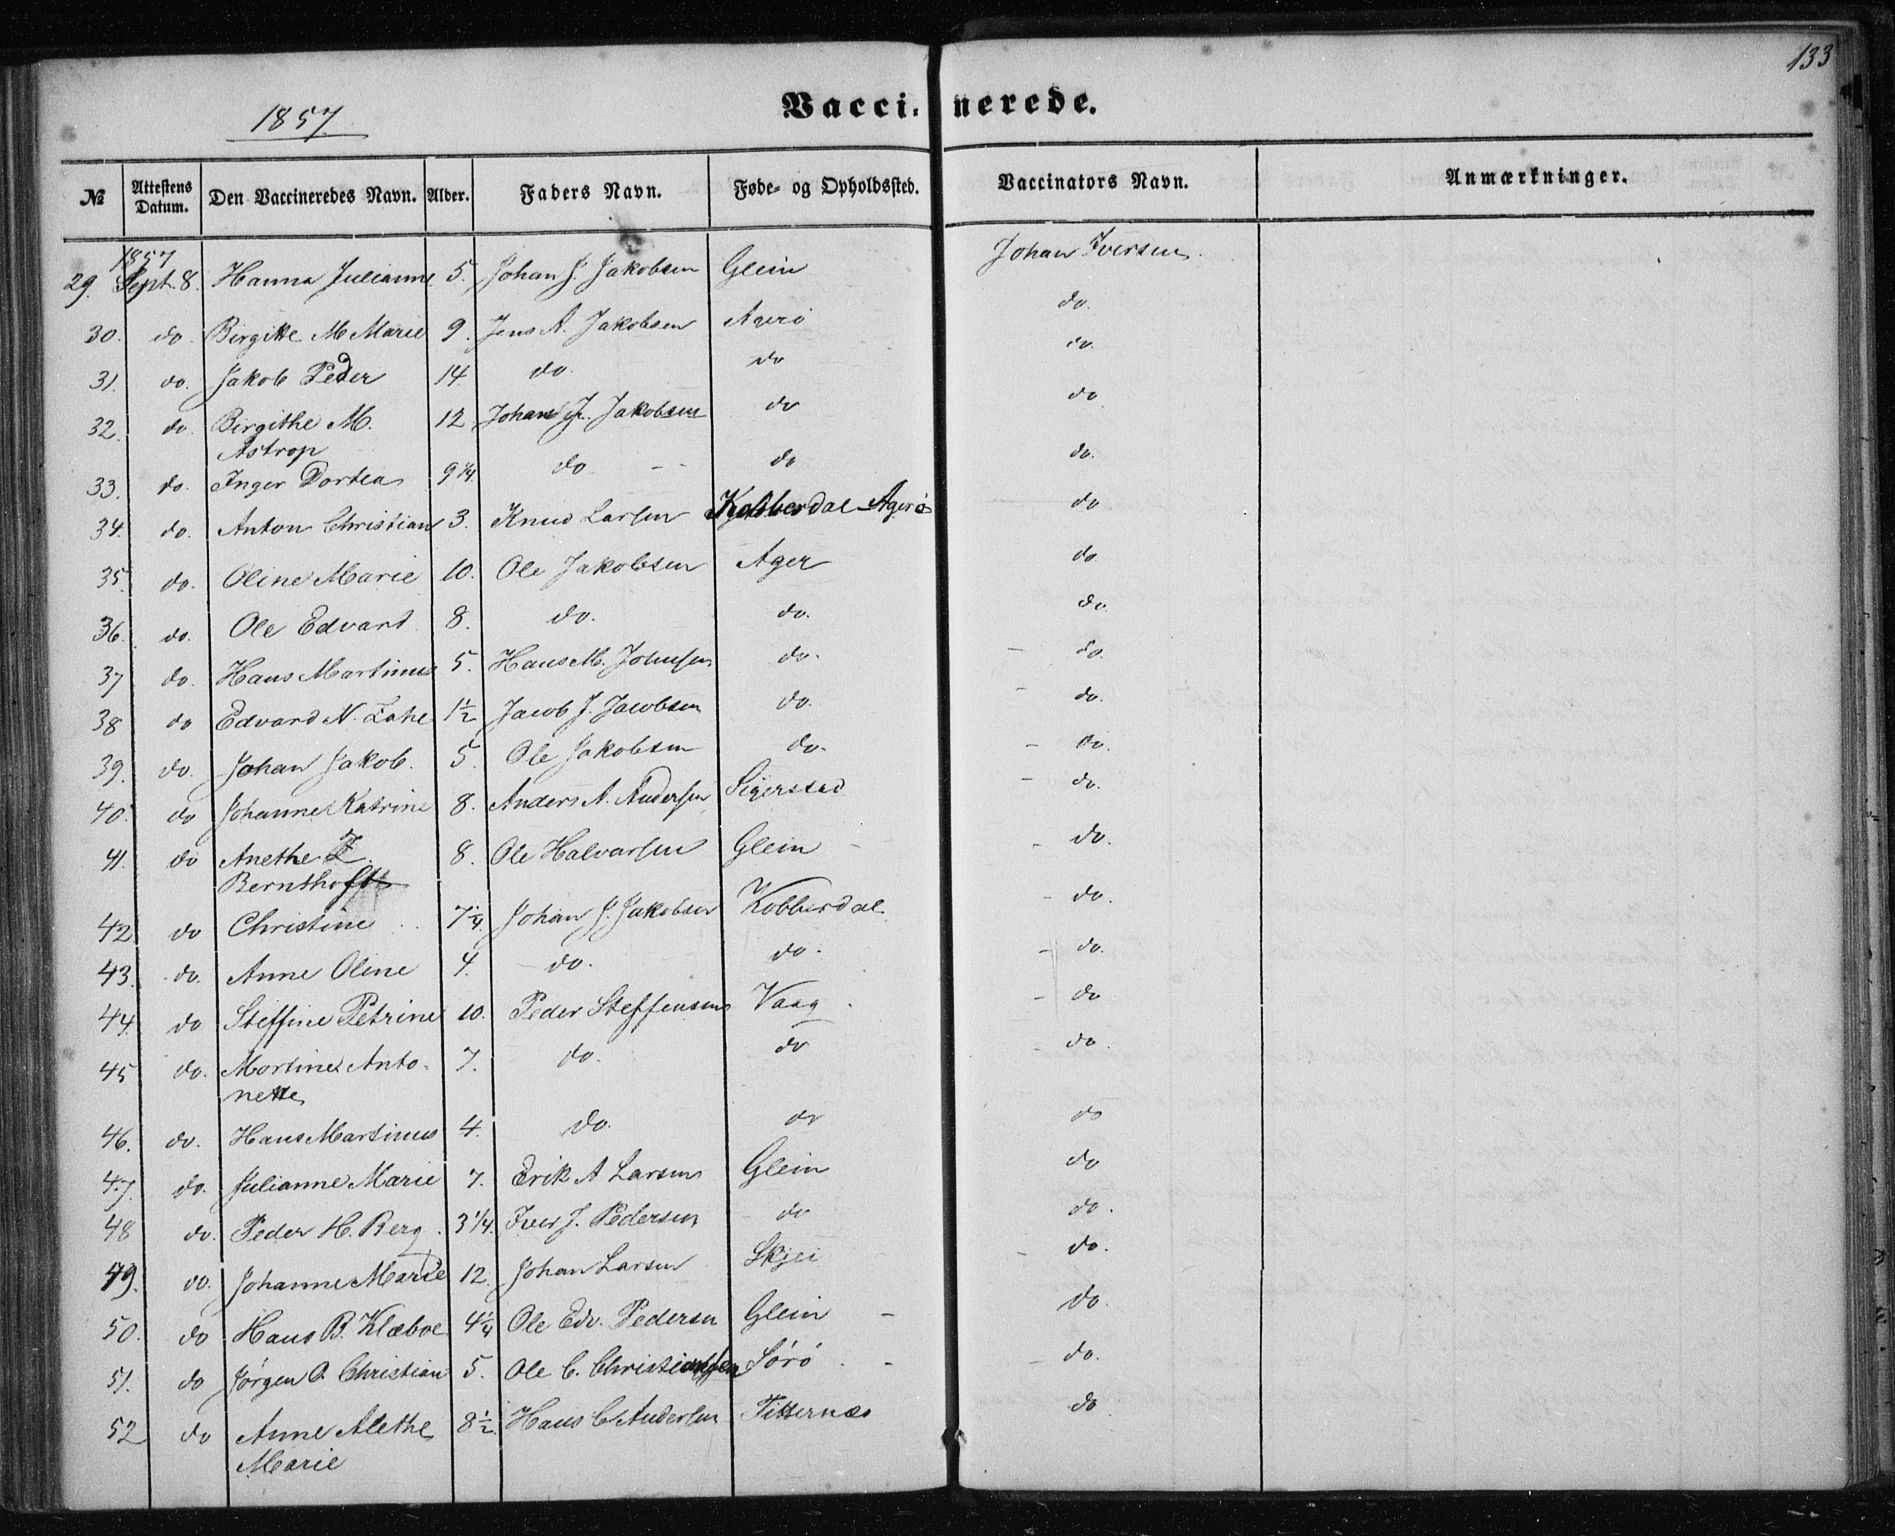 133
1857
Vaccinerede.
№ Attestens Datum. Den Vaccineredes Navn. Alder. Faders Navn. Føde- og Opholdssted. Vaccinators Navn. Anmærkninger.
1857
29. Sept. 8. Hanna Julianne 5. Johan J. Jakobsen Glein Johan Iversen.
30. do. Birgitte M Marie 9. Jens A. Jakobsen Agerö do.
31. do. Jakob Peder 14 do. do do.
32. do. Birgithe M. 12 Johan J. Jakobsen do do
Astrop
33. do. Inger Dortea 9 1/4 do do do.
34. do. Anton Christian 3. Knud Larsen Kobberdal Agerö do
35. do. Oline Marie 10. Ole Jakobsen Ager do
36. do. Ole Edvard 8. do. do. do.
37 do. Hans Martinus 5. Hans M. Johnsen do. do.
38 do Edvard N. Zahl 1 1/2 Jacob J. Jacobsen do. do.
39. do. Johan Jakob. 5. Ole Jakobsen do. do.
40. do Johanne Katrine 8. Anders A. Andersen Sigerstad do.
41. do Anethe 8. Ole Halvorsen Glein do.
Bernthoft
42 do Christine 7 1/4. Johan J. Jakobsen Kobberdal do.
43. do. Anne Oline 4. do. do. do.
44. do Steffine Petrine 10. Peder Steffensen Vaag do
45 do. Martine Anto- 7. do. do do.
nette
46. do. Hans Martinus 4. do. do do
47. do. Julianne Marie 7. Erik A Larsen Glein do
48 do. Peder H. Berg. 3 1/4. Iver J. Pedersen do do.
49. do. Johanne Marie 12. Johan Larsen Skjei do.
50. do Hans B. Klæboe 4 1/4 Ole Edv. Pedersen Glein do.
51. do Jørgen O. Christian 5. Ole C. Christiansen Sörö do.
52 do Anne Alethe 8 1/2. Hans C Andersen Titternæs do
Marie